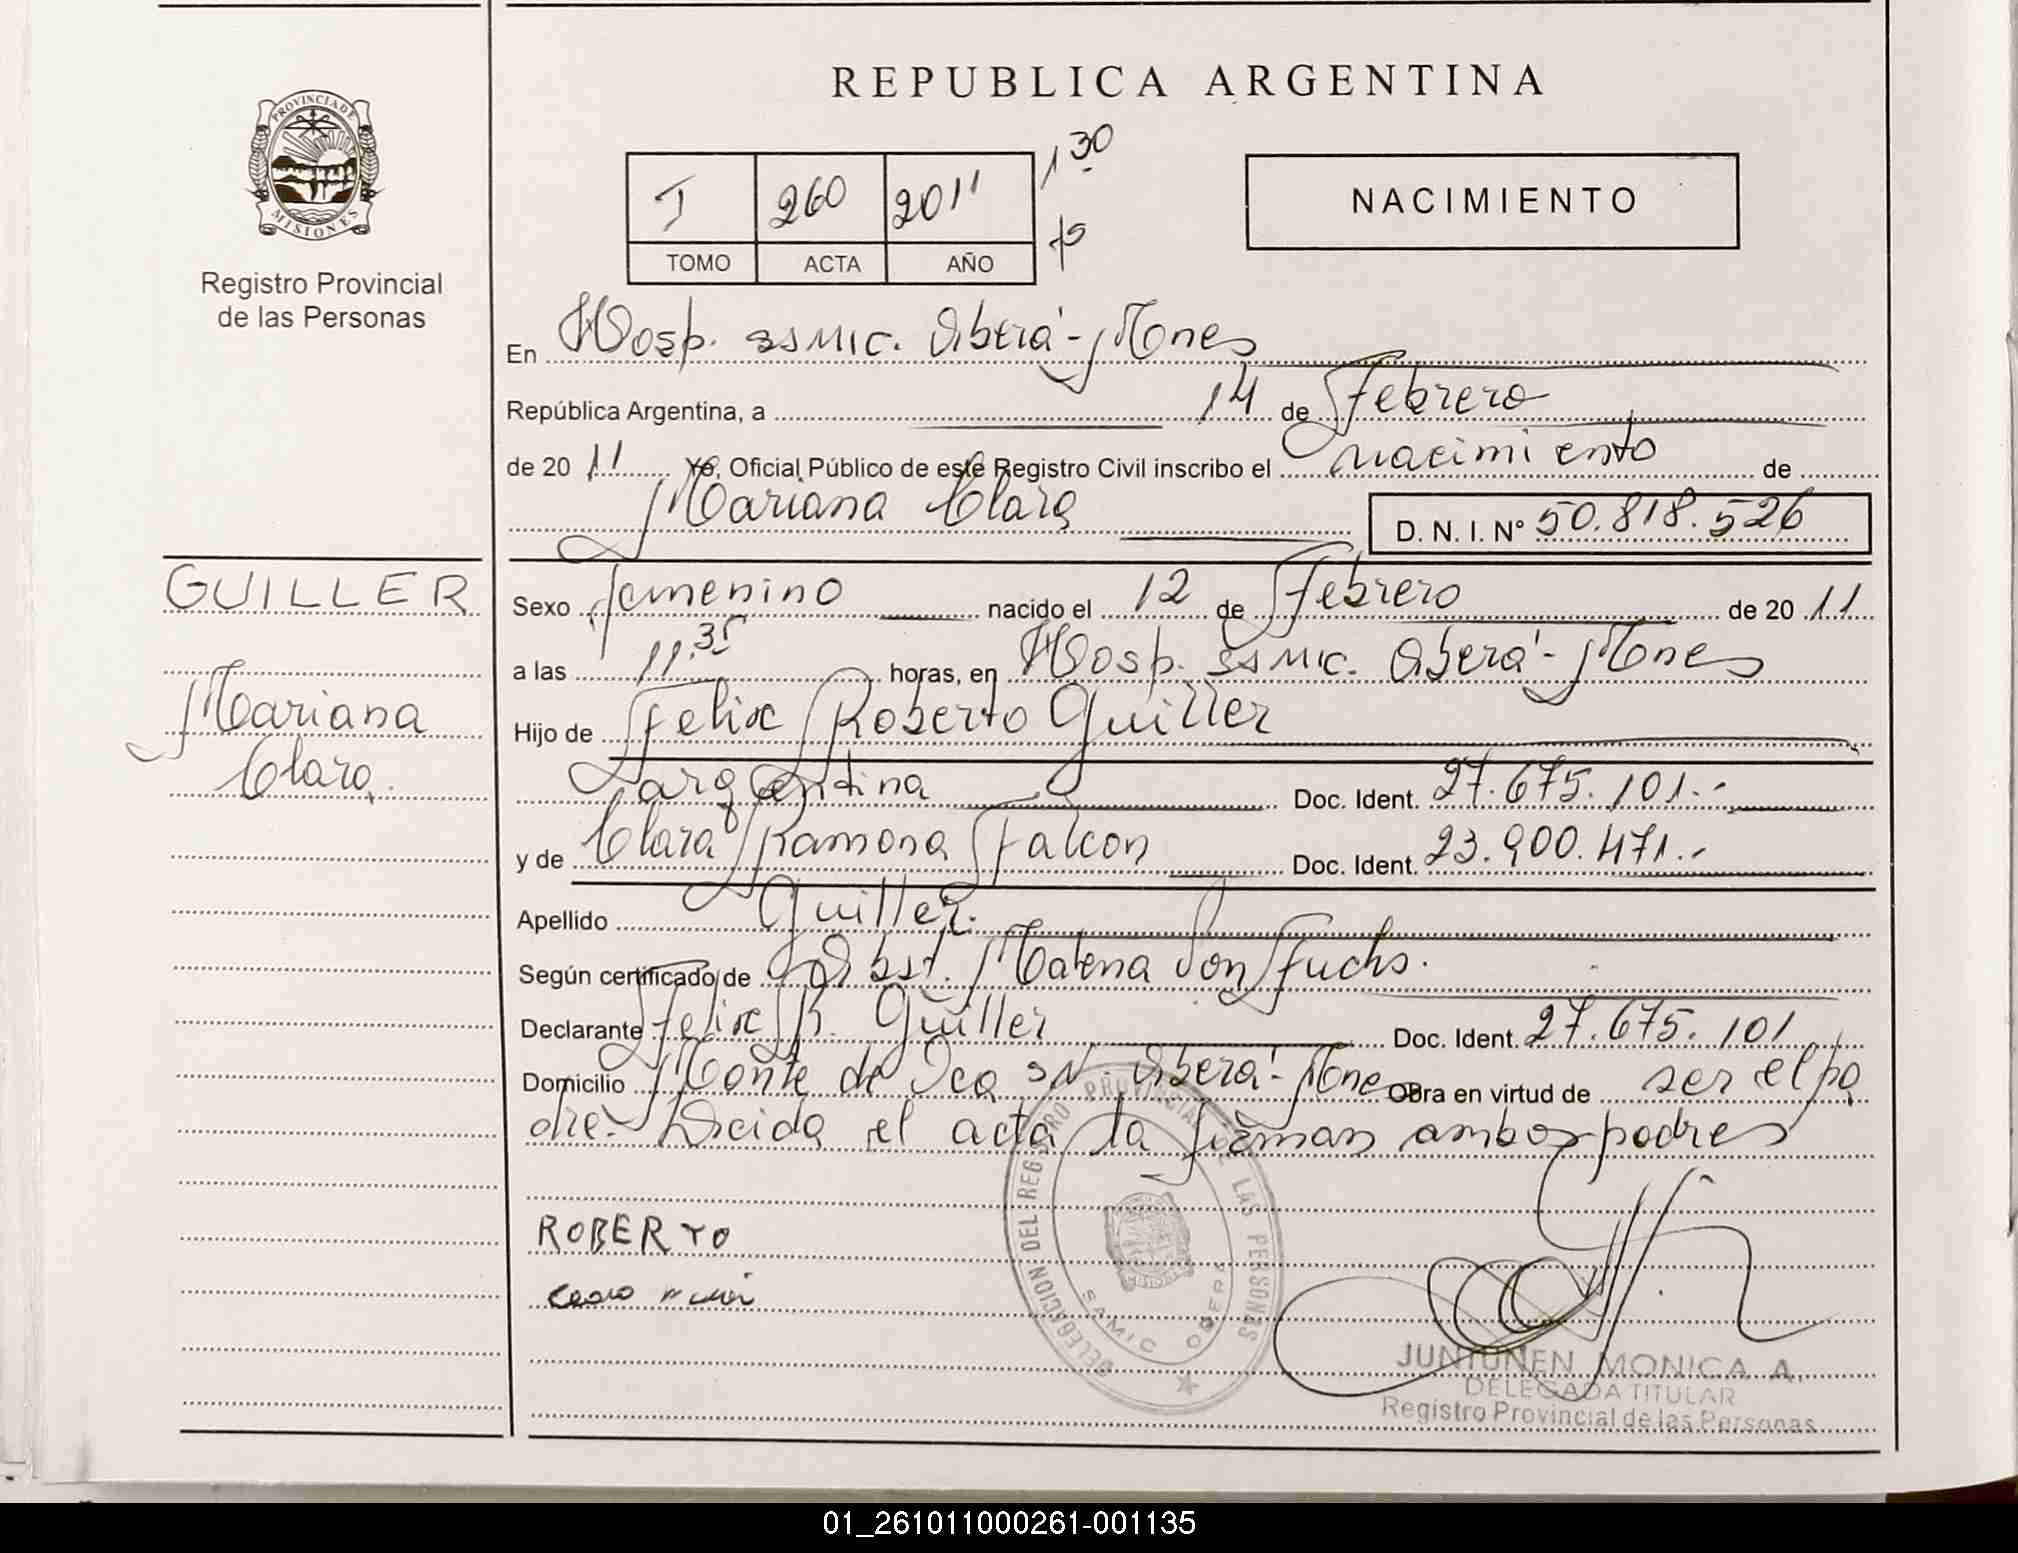 PROVINCIA DE
MISIONES
Registro Provincial
de las Personas
REPUBLICA ARGENTINA
I 260 2011
TOMO ACTA AÑO
1 30
NACIMIENTO
En Hosp. SSMIC. Oberá - Mnes
República Argentina, a 14 de Febrero
de 20 11 Yo, Oficial Público de este Registro Civil inscribo el nacimiento de
Mariana Clara
D. N. I. Nº 50.818.526
GUILLER
Mariana
Clara.
Sexo femenino nacido el 12 de Febrero de 20 11
a las 11.35 horas, en Hosp. SSMIC. Oberá - Mnes
Hijo de Felix Roberto Guiller
argentina Doc. Ident. 27.675.101.-
y de Clara Ramona Falcon Doc. Ident. 23.900.471.-
Apellido Guiller.
Según certificado de Obst. Malena Von Fuchs.
Declarante Felix R. Guiller Doc. Ident. 27.675.101
Domicilio Monte de Oca SN. Oberá - Mnes Obra en virtud de ser el pa
dre. Leida el acta la firman ambos padres
ROBERTO
DELEGACION DEL REGISTRO PROVINCIAL DE LAS PERSONAS
SAMIC OBERA
JUNTUNEN MONICA A.
DELEGADA TITULAR
Registro Provincial de las Personas
01_261011000261-001135